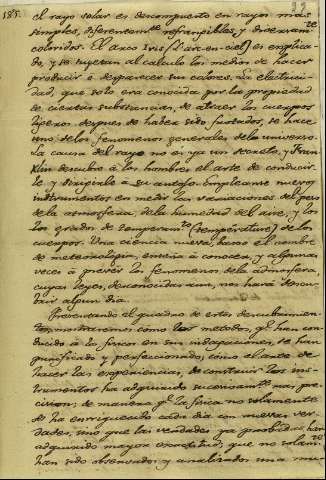 185.
el rayo solar es descompuesto en rayos mas
simples, diferentemte refrangibles, y diversamte
coloridos. El Arco Iris (l'arc-en-ciel) es explica-
do, y se sujetan al calculo los medios de hacer
producir ó desparecer sus colores. La electrici-
dad, que solo era conocida por la propiedad
de ciertas substancias, de atraer los cuerpos
ligeros despues de haber sido frotados, se hace
uno de los fenomenos generales del universo.
La causa del rayo no es ya un secreto, y Fran
klin descubre á los hombres el arte de conducir-
le y dirigirle á su antojo. Empleanse nuevos
instrumentos en medir las variaciones del peso
de la atmosfera, de la humedad del aire, y los
grados de temperamto (température) de los
cuerpos. Una ciencia nueva, baxo el nombre
de meteorologia, enseña á conocer, y algunas
veces á prever los fenomenos de la atmosfera,
cuyas leyes, desconocidas aun, nos hará descu-
brir algun dia.
Presentando el quadro de estos descubrimien-
tos, mostraremos como los metodos, qe han con-
ducido á la fisica en sus indagaciones, se han
purificado y perfeccionado, como el arte de
hacer las experiencias, de construir los ins-
trumentos ha adquirido sucesivamte mas pre-
cision: de manera qe la fisica no solamente
se ha enriquecido cada dia con nuevas ver-
dades, sino que las verdades ya probadas han
adquirido mayor exactitud; que no solamte
han sido observados y analizados una mu-